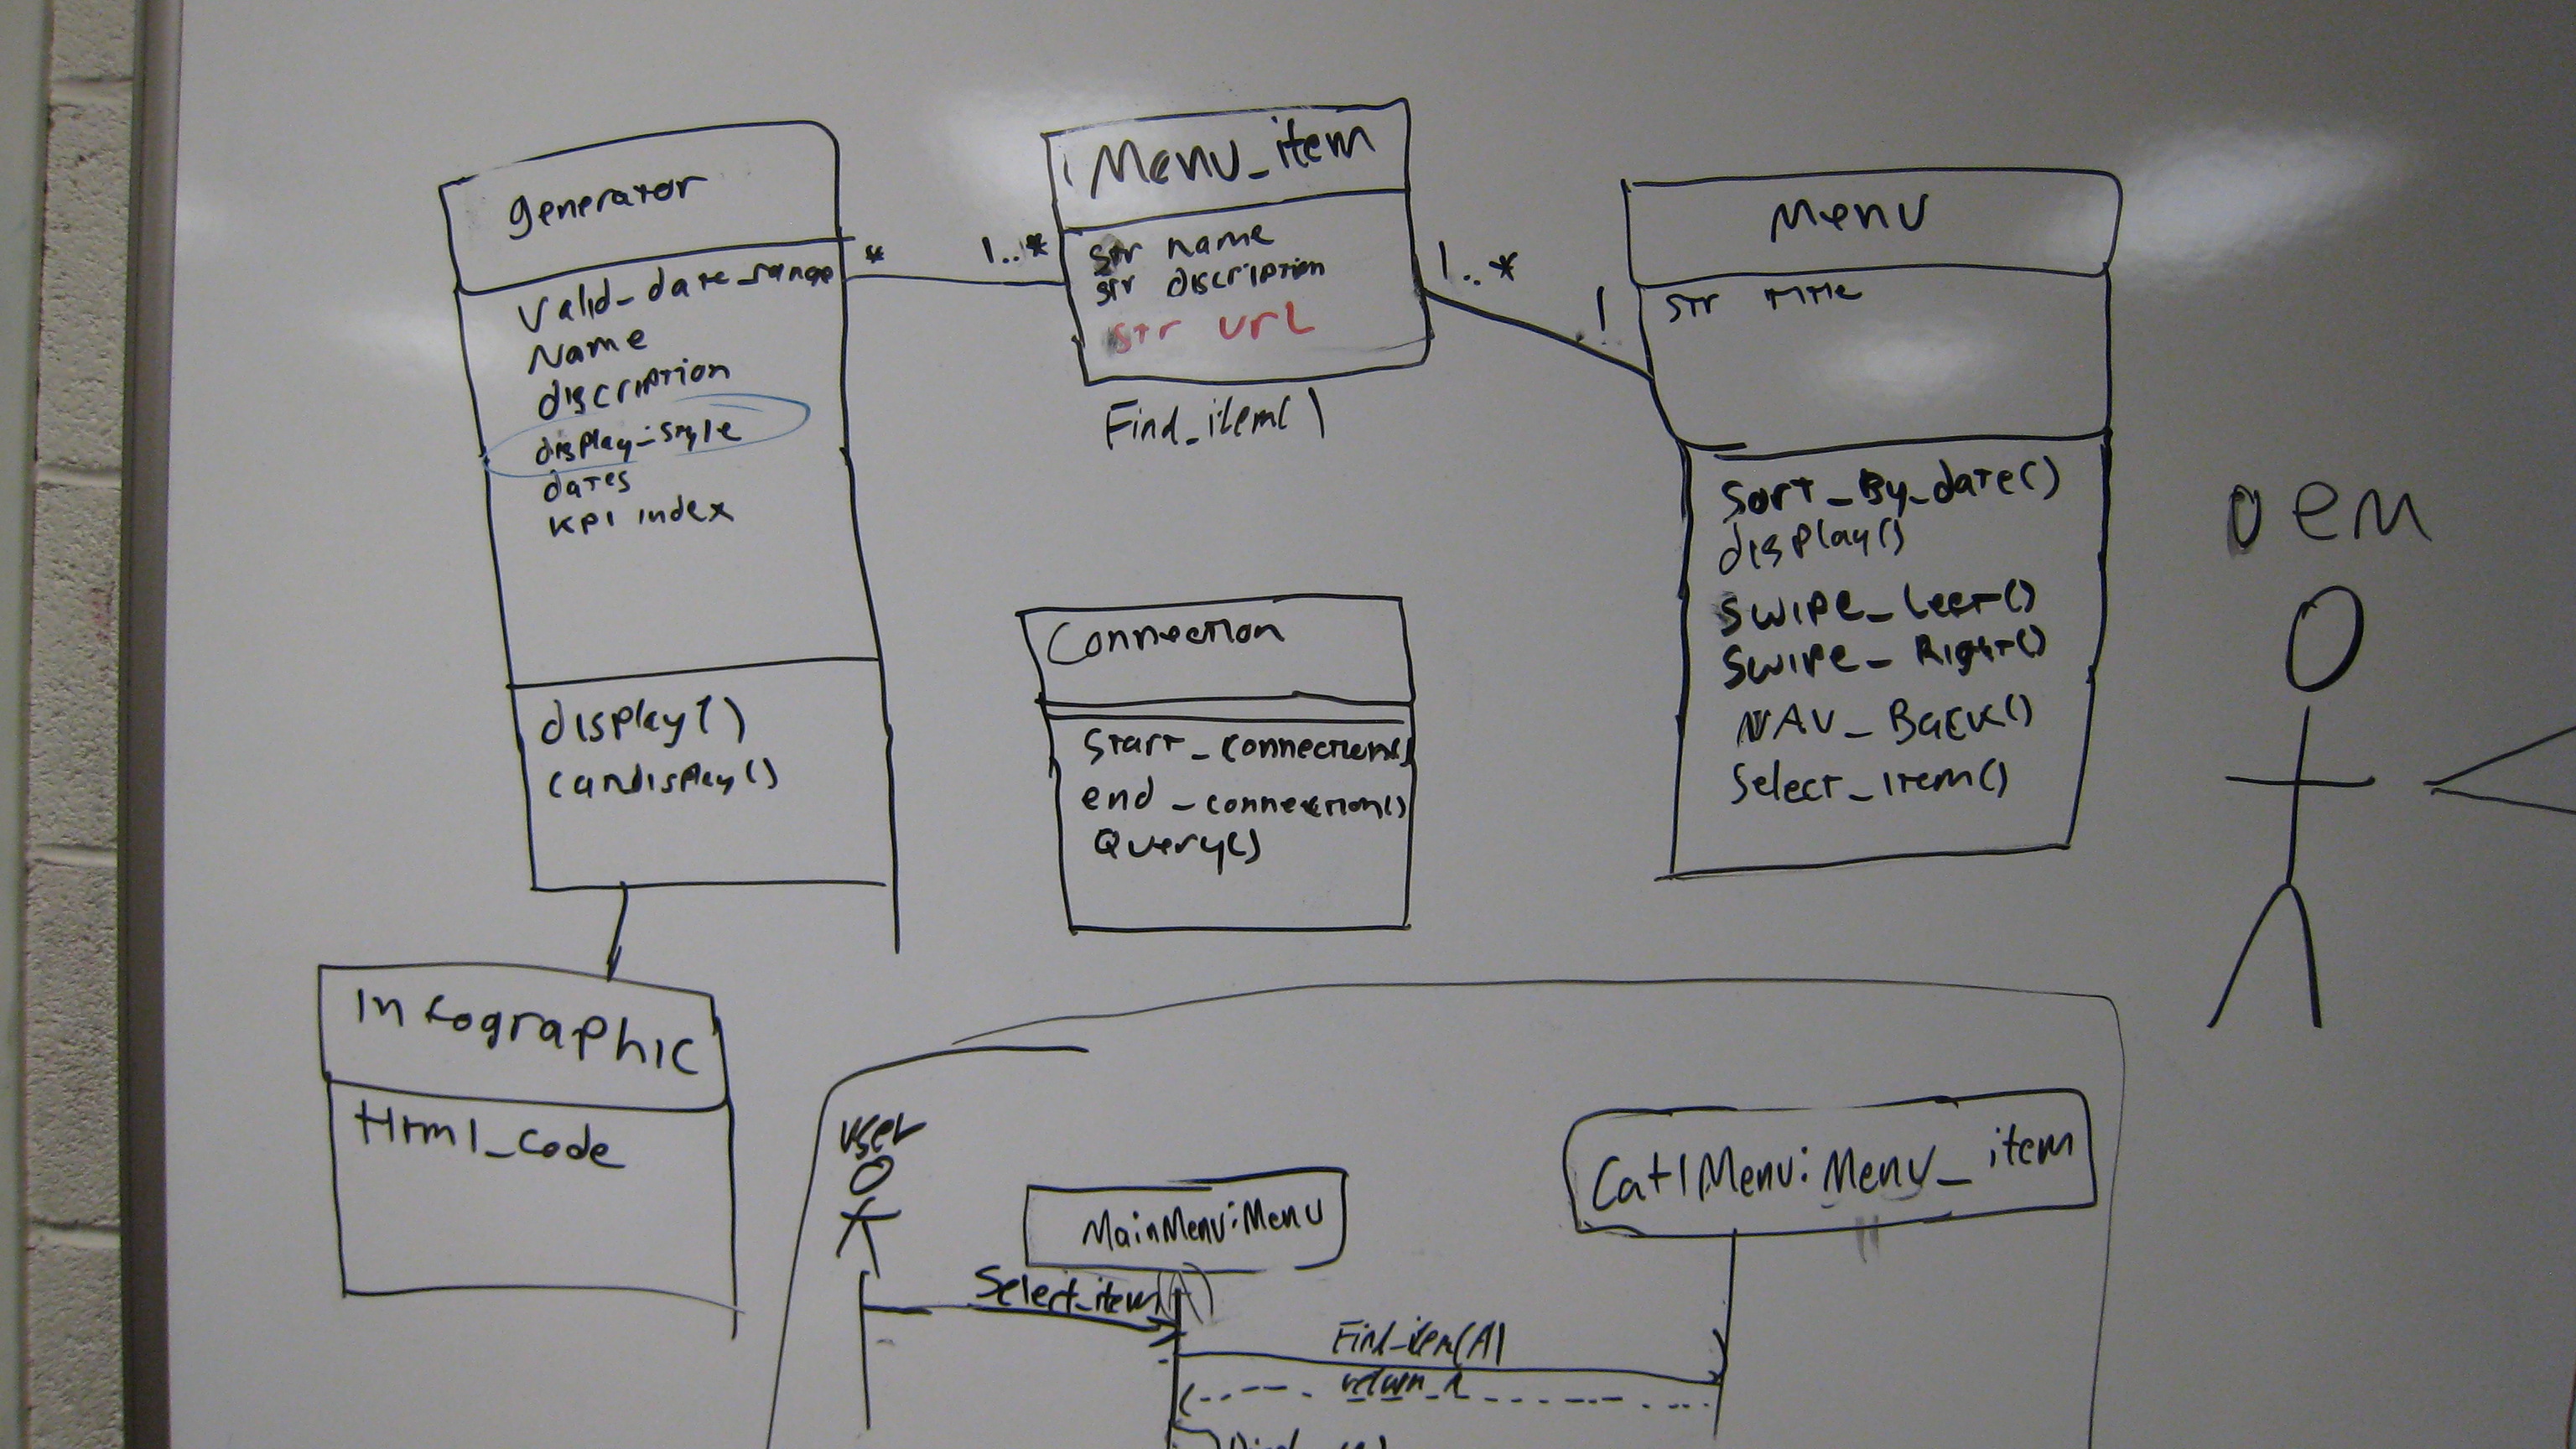 generator
Valid_date_range
Name
discription
display_style
dates
KPI index
display()
candisplay()
*
1..*
Menu_item
str name
str discription
str url
Find_item()
1..*
1
Menu
str title
Sort_By_date()
display()
Swipe_left()
Swipe_Right()
NAV_Back()
Select_item()
Connection
Start_connection()
end_connection()
Query()
oem
Infographic
Html_code
user
MainMenu:Menu
Cat1Menu:Menu_item
Select_item(A)
Find_item(A)
return